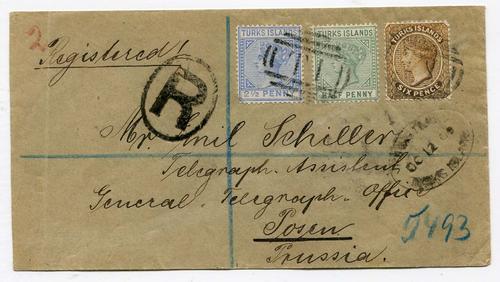 2
Registered!
TURKS ISLANDS
2½ PENNY
TURKS ISLANDS
HALF PENNY
TURKS ISLANDS
SIX PENCE
R
Mr. Emil Schiller
Telegraph-Assistent
General-Telegraph-Office
Posen
Prussia.
OC 12
5493